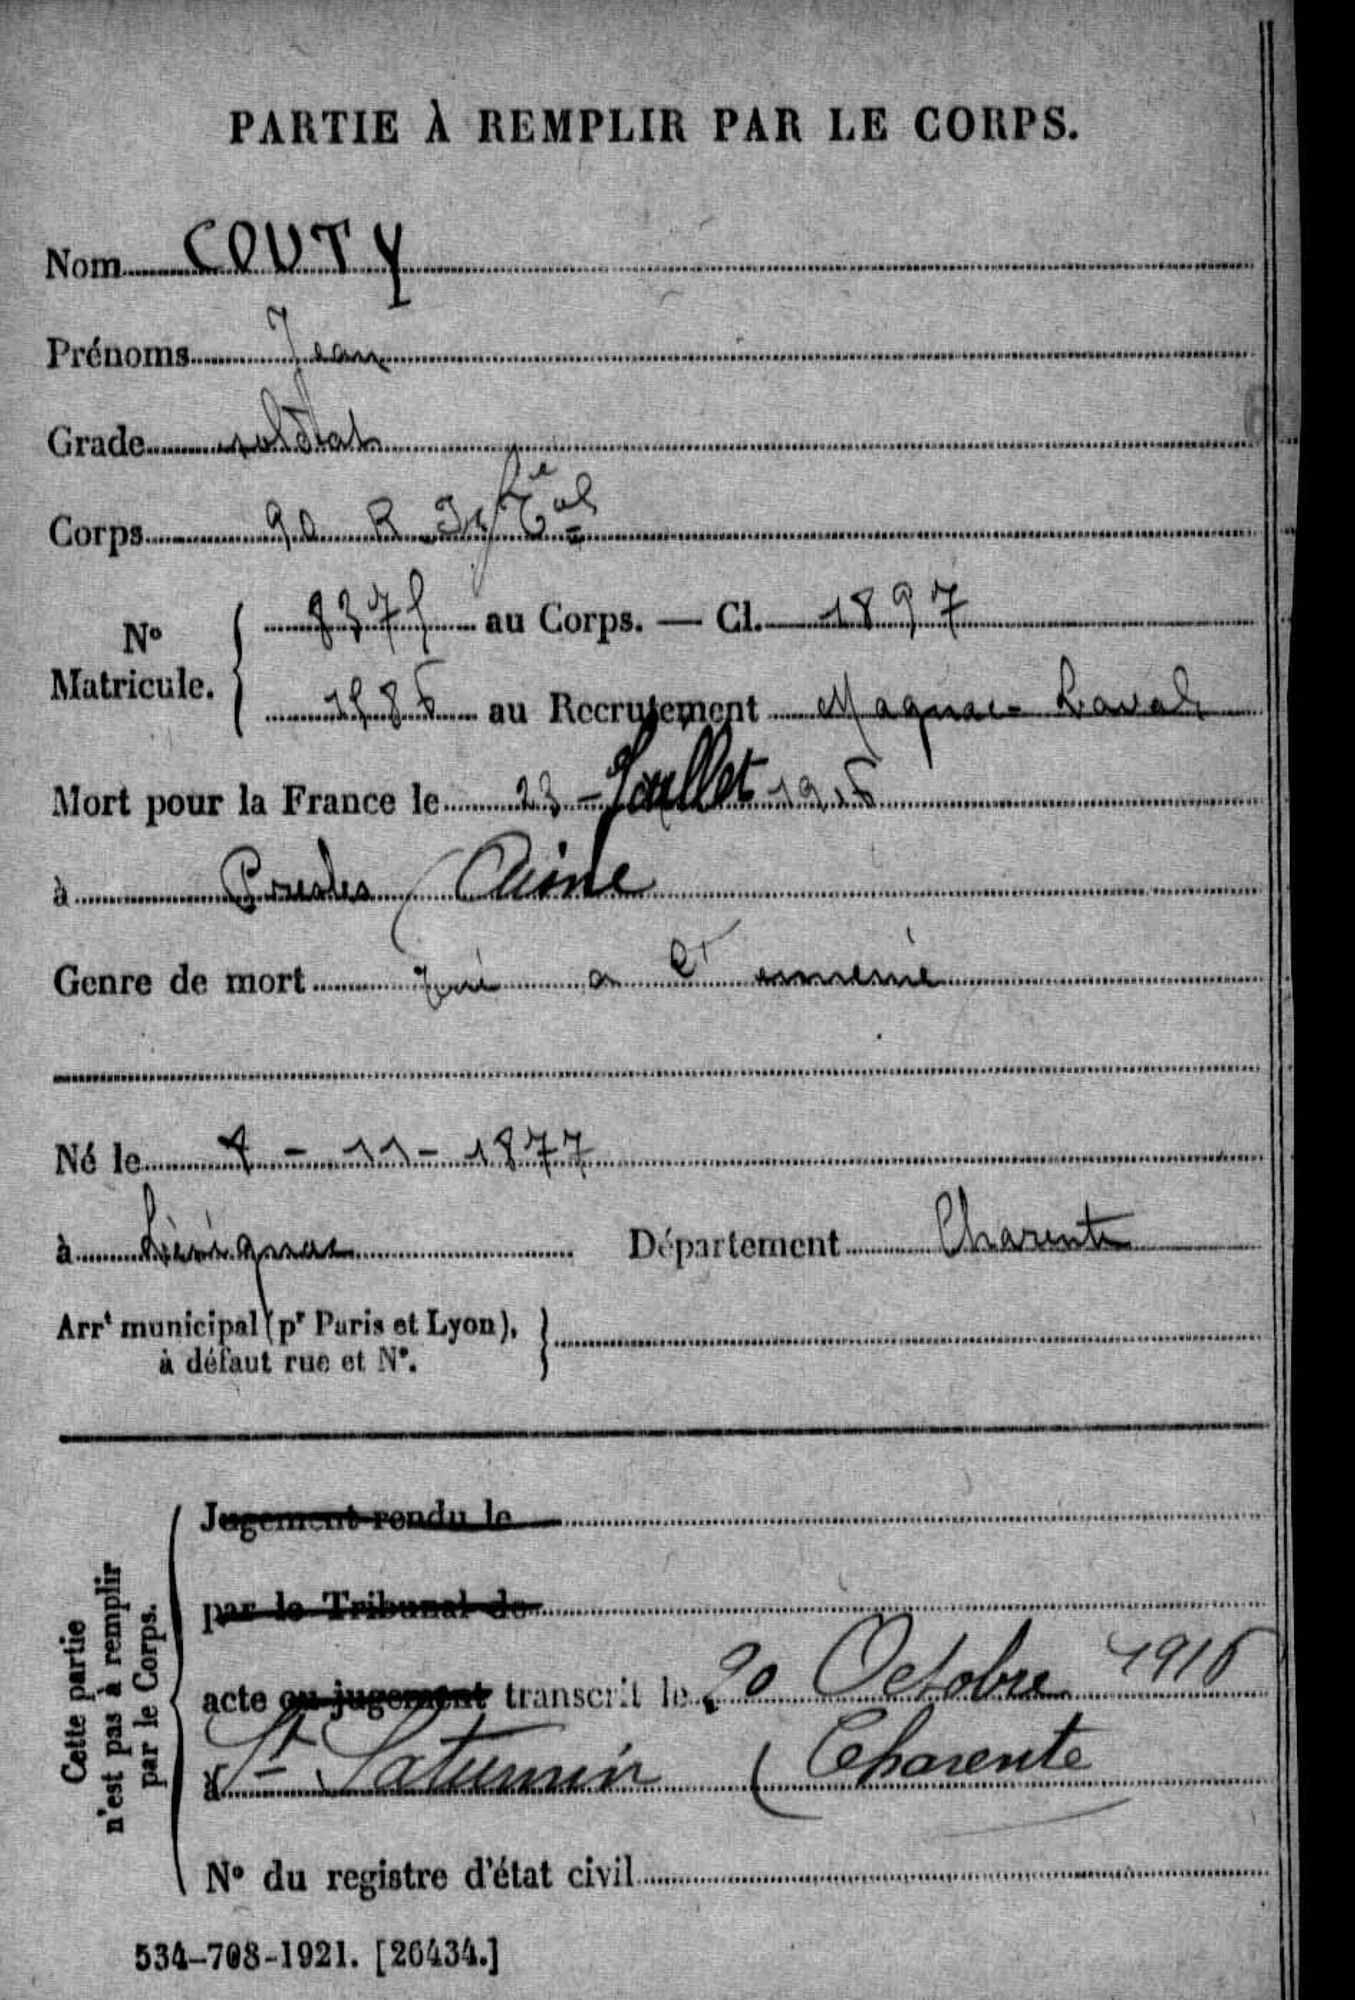 PARTIE À REMPLIR PAR LE CORPS.
Nom COUTY
Prénoms Jean
Grade soldat
Corps 90 R Inf Tal
N° Matricule. 8375 au Corps. — Cl. 1897
1586 au Recrutement Magnac-Laval
Mort pour la France le 23 - Juillet 1916
à Presles (Aisne
Genre de mort Tué a l'ennemi
Né le 8 - 11 - 1877
à Lésignac Département Charente
Arrt municipal (pr Paris et Lyon),
à défaut rue et N°.
Cette partie
n'est pas à remplir
par le Corps.
Jugement rendu le
par le Tribunal de
acte ou jugement transcrit le 20 Octobre 1916
à St- Saturnin (Charente
N° du registre d'état civil
534-708-1921. [26434.]